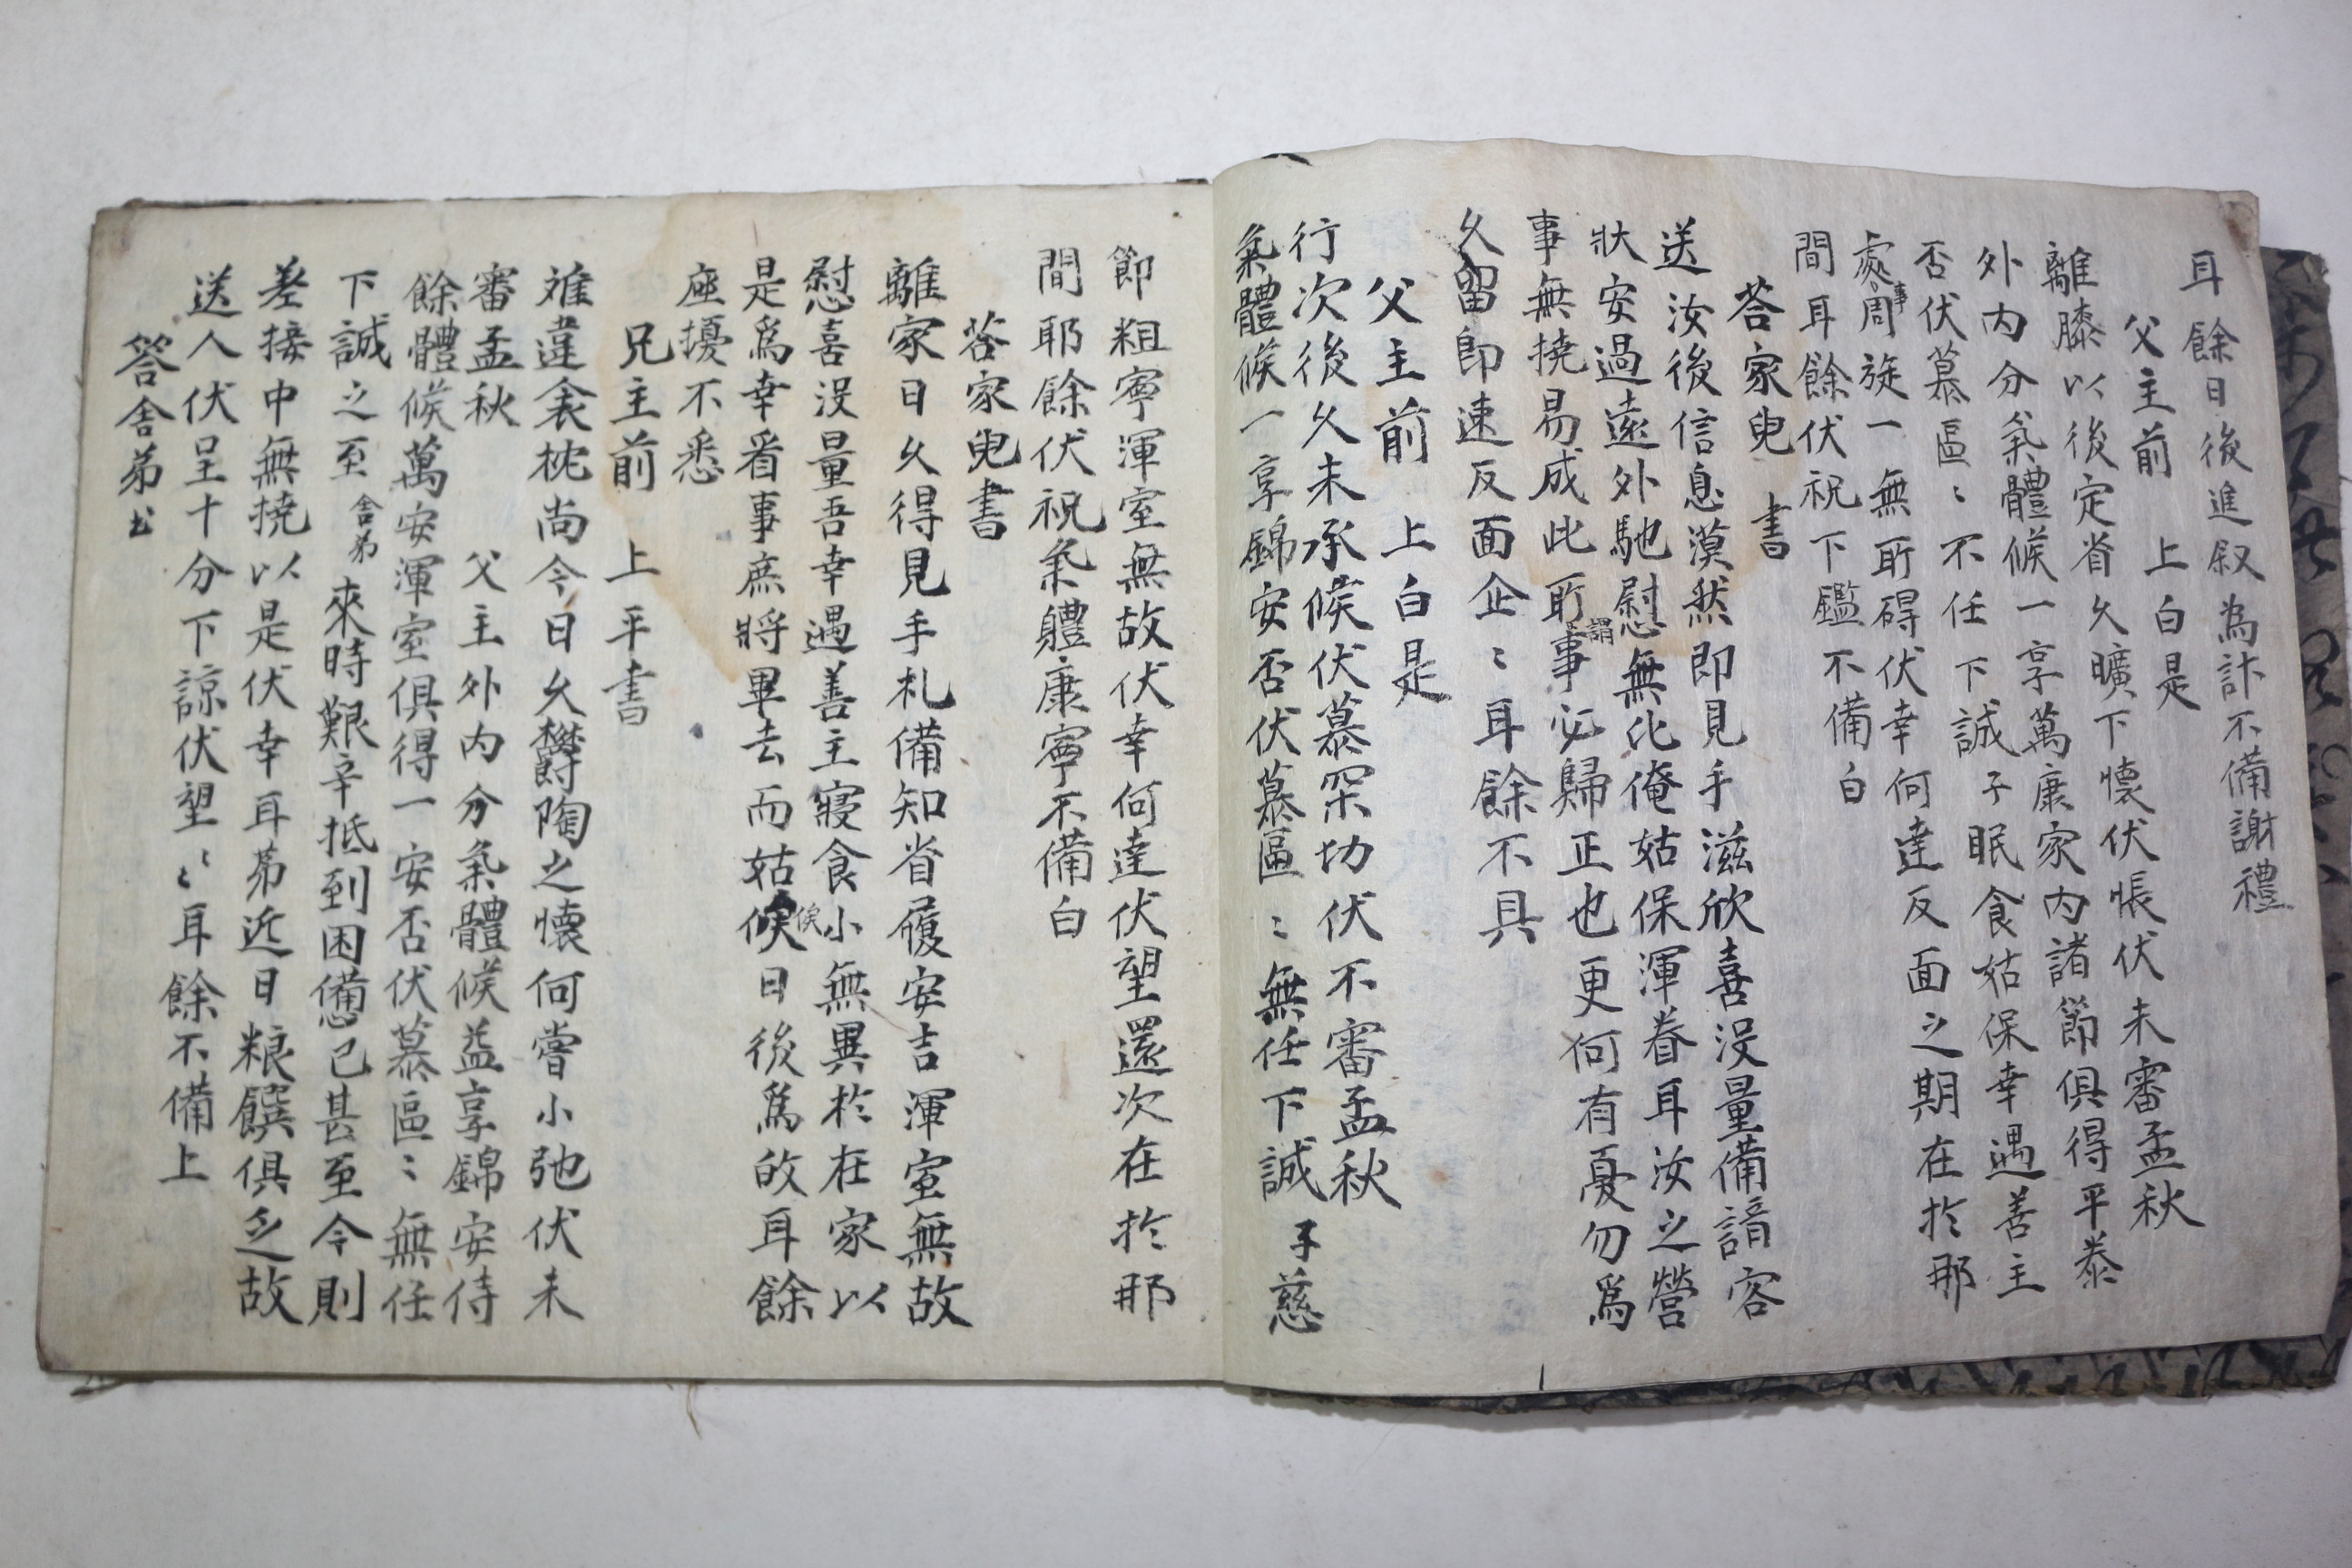 耳餘日後進叙為計不備謝禮
父主前 上白是
離膝以後定省久曠下懷伏悵伏未審孟秋
外內分氣體候一享萬康家內諸節俱得平泰
否伏慕區〻不任下誠子眠食姑保幸遇善主
處事周旋一無所碍伏幸何達反面之期在於那
間耳餘伏祝下鑑不備白
答家兒 書
送汝後信息漠然即見手滋欣喜沒量備諳客
狀安過遠外馳慰無比俺姑保渾眷耳汝之營
事無撓易成此所謂事必歸正也更何有憂勿爲
久留卽速反面企〻耳餘不具
父主前 上白是
行次後久未承候伏慕罙切伏不審孟秋
氣體候一享錦安否伏慕區〻無任下誠子慈
節粗寧渾室無故伏幸何達伏望還次在於那
間耶餘伏祝氣體康寧不備白
答家兒書
離家日久得見手札備知省履安吉渾室無故
慰喜沒量吾幸遇善主寢食小無異於在家以
是爲幸看事庶將畢去而姑候候日後爲放耳餘
座擾不悉
兄主前 上平書
違衾枕尚今日久欝陶之懷何嘗小弛伏未
審孟秋 父主外內分氣體候益享錦安侍
餘體候萬安渾室俱得一安否伏慕區〻無任
下誠之至舍弟來時艱辛抵到困憊已甚至今則
差接中無撓以是伏幸耳弟近日粮饌俱乏故
送人伏呈十分下諒伏望〻耳餘不備上
答舍弟書